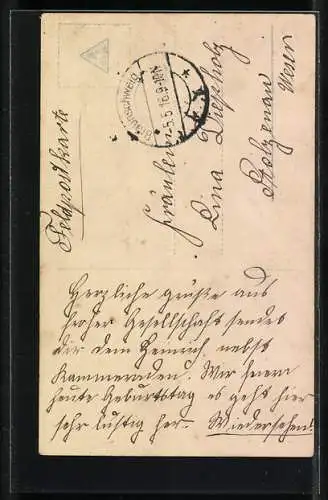 Feldpostkarte
Braunschweig
-5.5.16.9-10V.
Fräulein
Lina Diepholz
Stolzenau
Weser
Herzliche grüße aus
froher Gesellschaft sendet
dir dein Heinrich nebst
Kammeraden. Wir feiern
heute Geburtstag es geht hier
sehr lustig her. Wiedersehen!